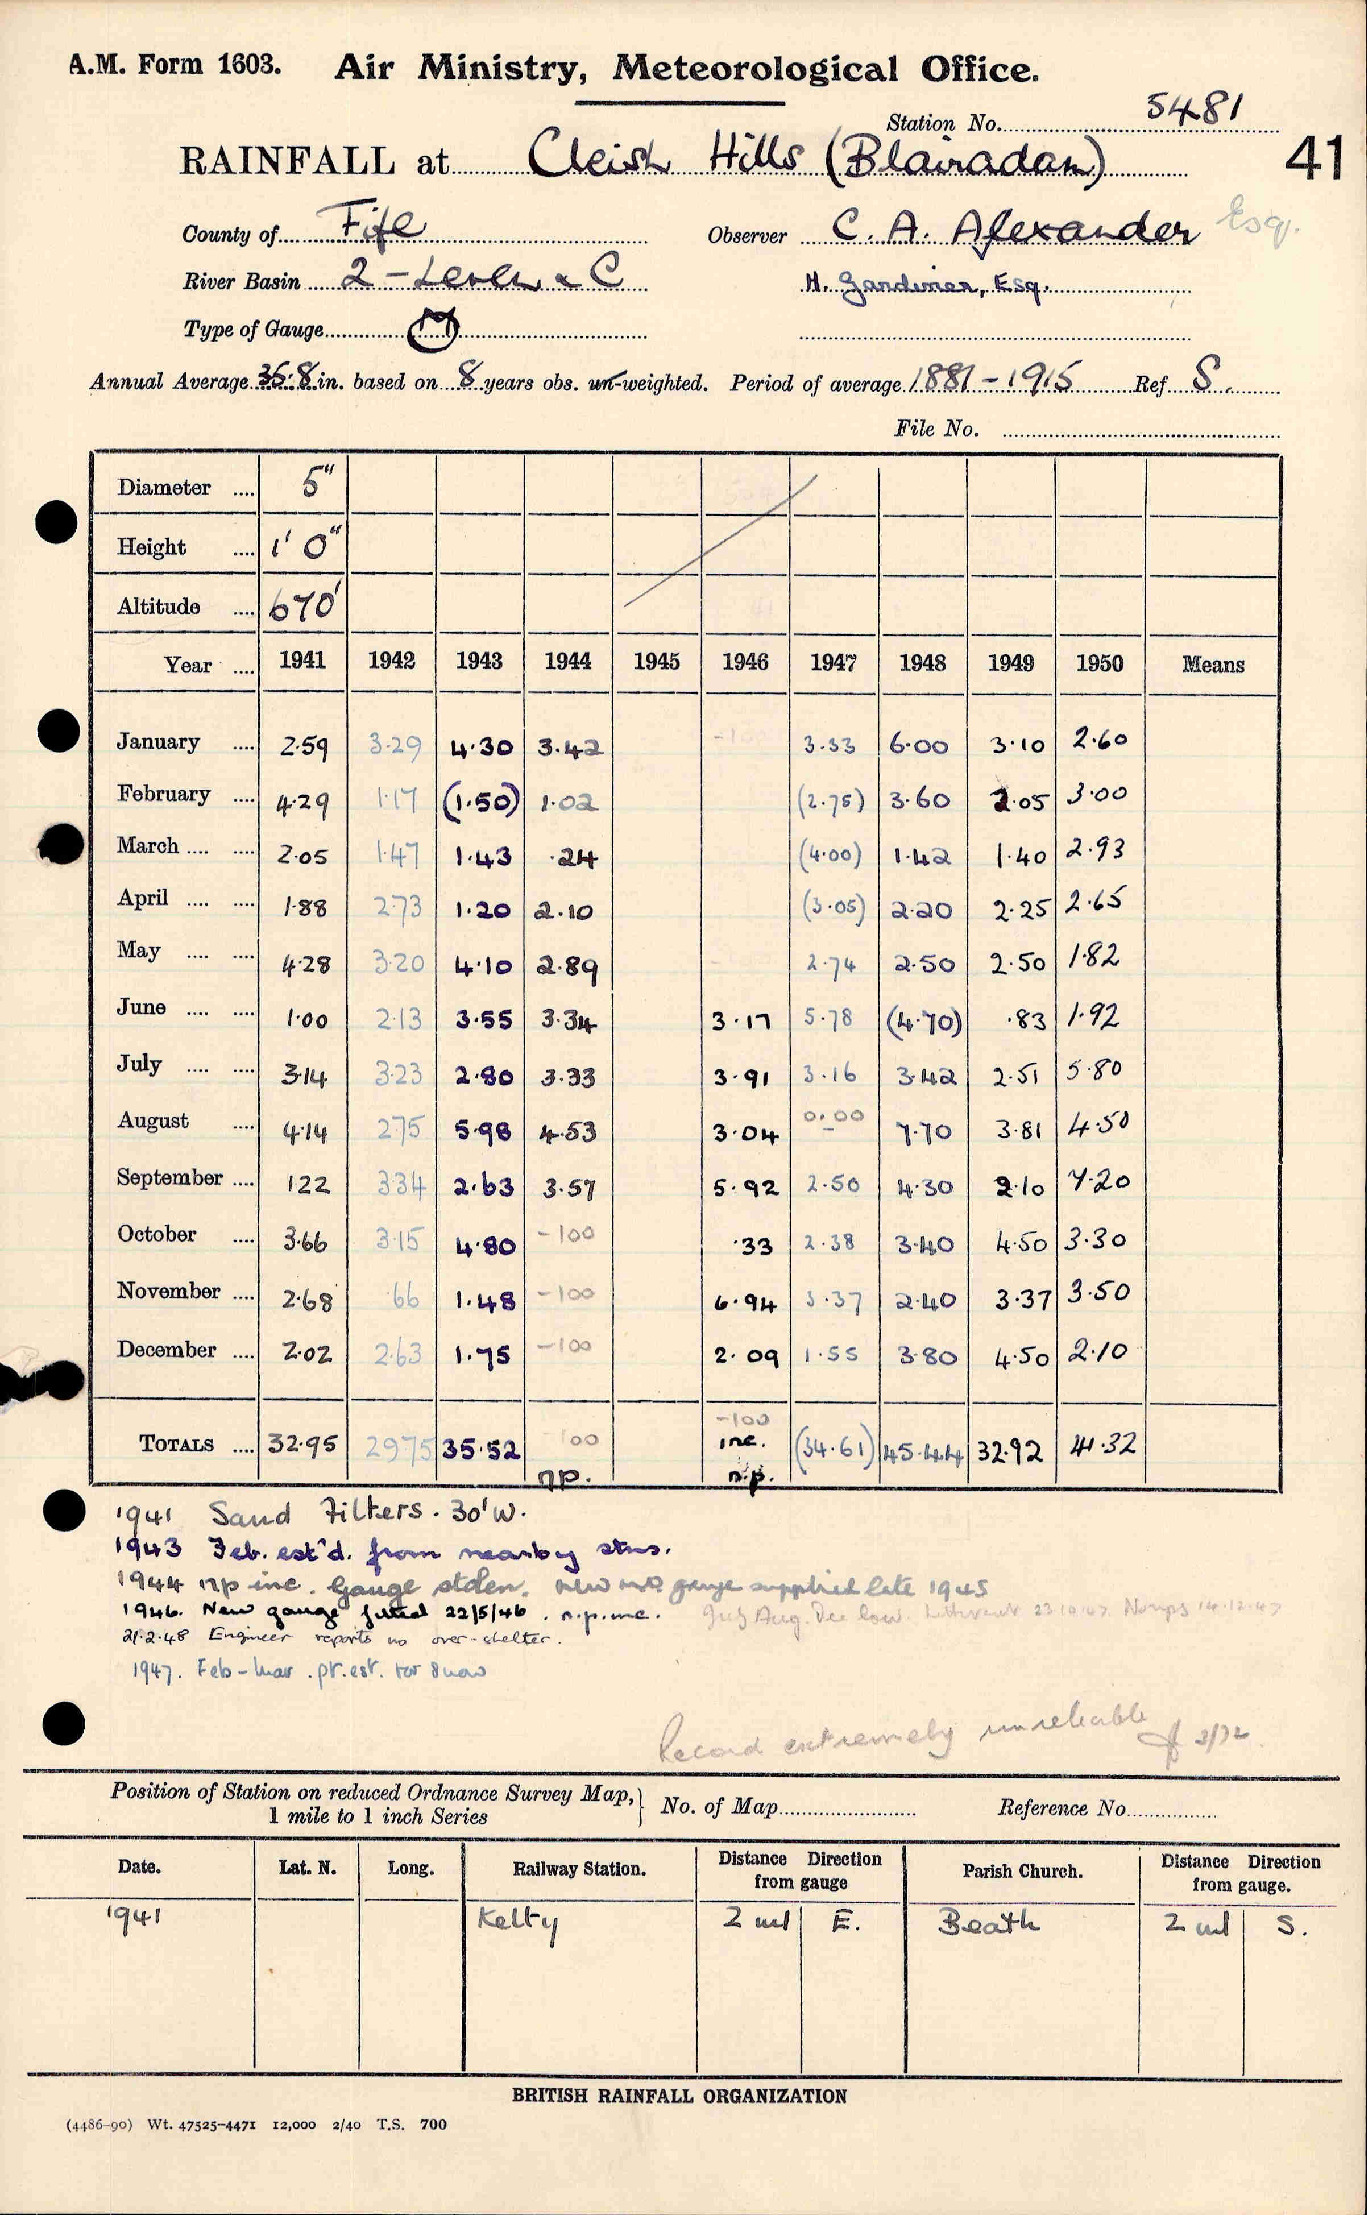 A.M. Form 1603. Air Ministry, Meteorological Office.
Station No. 5481
RAINFALL at Cleish Hills (Blairadam) 41
County of Fife Observer C. A. Alexander Esq.
River Basin 2 - Leven & C H. Gardiner, Esq.
Type of Gauge M
Annual Average 35.8 in. based on 8 years obs. un-weighted. Period of average 1881-1915 Ref S.
File No.
Diameter .... 5"
Height .... 1' 0"
Altitude .... 670'
Year .... 1941 1942 1943 1944 1945 1946 1947 1948 1949 1950 Means
January .... 2.59 3.29 4.30 3.42 -100 3.33 6.00 3.10 2.60
February .... 4.29 1.17 (1.50) 1.02 (2.75) 3.60 2.05 3.00
March .... .... 2.05 1.47 1.43 .24 (4.00) 1.42 1.40 2.93
April .... .... 1.88 2.73 1.20 2.10 (3.05) 2.20 2.25 2.65
May .... .... 4.28 3.20 4.10 2.89 2.74 2.50 2.50 1.82
June .... .... 1.00 2.13 3.55 3.34 3.17 5.78 (4.70) .83 1.92
July .... .... 3.14 3.23 2.80 3.33 3.91 3.16 3.42 2.51 5.80
August .... 4.14 2.75 5.98 4.53 3.04 0.00 7.70 3.81 4.50
September .... 1.22 3.34 2.63 3.57 5.92 2.50 4.30 2.10 7.20
October .... 3.66 3.15 4.80 -100 .33 2.38 3.40 4.50 3.30
November .... 2.68 .66 1.48 -100 6.94 3.37 2.40 3.37 3.50
December .... 2.02 2.63 1.75 -100 2.09 1.55 3.80 4.50 2.10
-100
TOTALS .... 32.95 29.75 35.52 -100 inc. (34.61) 45.44 32.92 41.32
n.p. n.p.
1941 Sand Filters. 30' W.
1943 Feb. est'd. from nearby stns.
1944 np inc. Gauge stolen. New MO gauge supplied late 1945
1946. New gauge fitted 22/5/46. n.p. inc. July Aug. Dec low. 23.10.47 14.12.47
21.2.48 Engineer reports no over-shelter.
1947. Feb-Mar. pt. est. for snow
Record extremely unreliable 2/72.
Position of Station on reduced Ordnance Survey Map,
1 mile to 1 inch Series } No. of Map Reference No.
Date. Lat. N. Long. Railway Station. Distance Direction from gauge Parish Church. Distance Direction from gauge.
1941 Kelty 2 ml E. Beath 2 ml S.
BRITISH RAINFALL ORGANIZATION
(4486-90) Wt. 47525-4471 12,000 2/40 T.S. 700